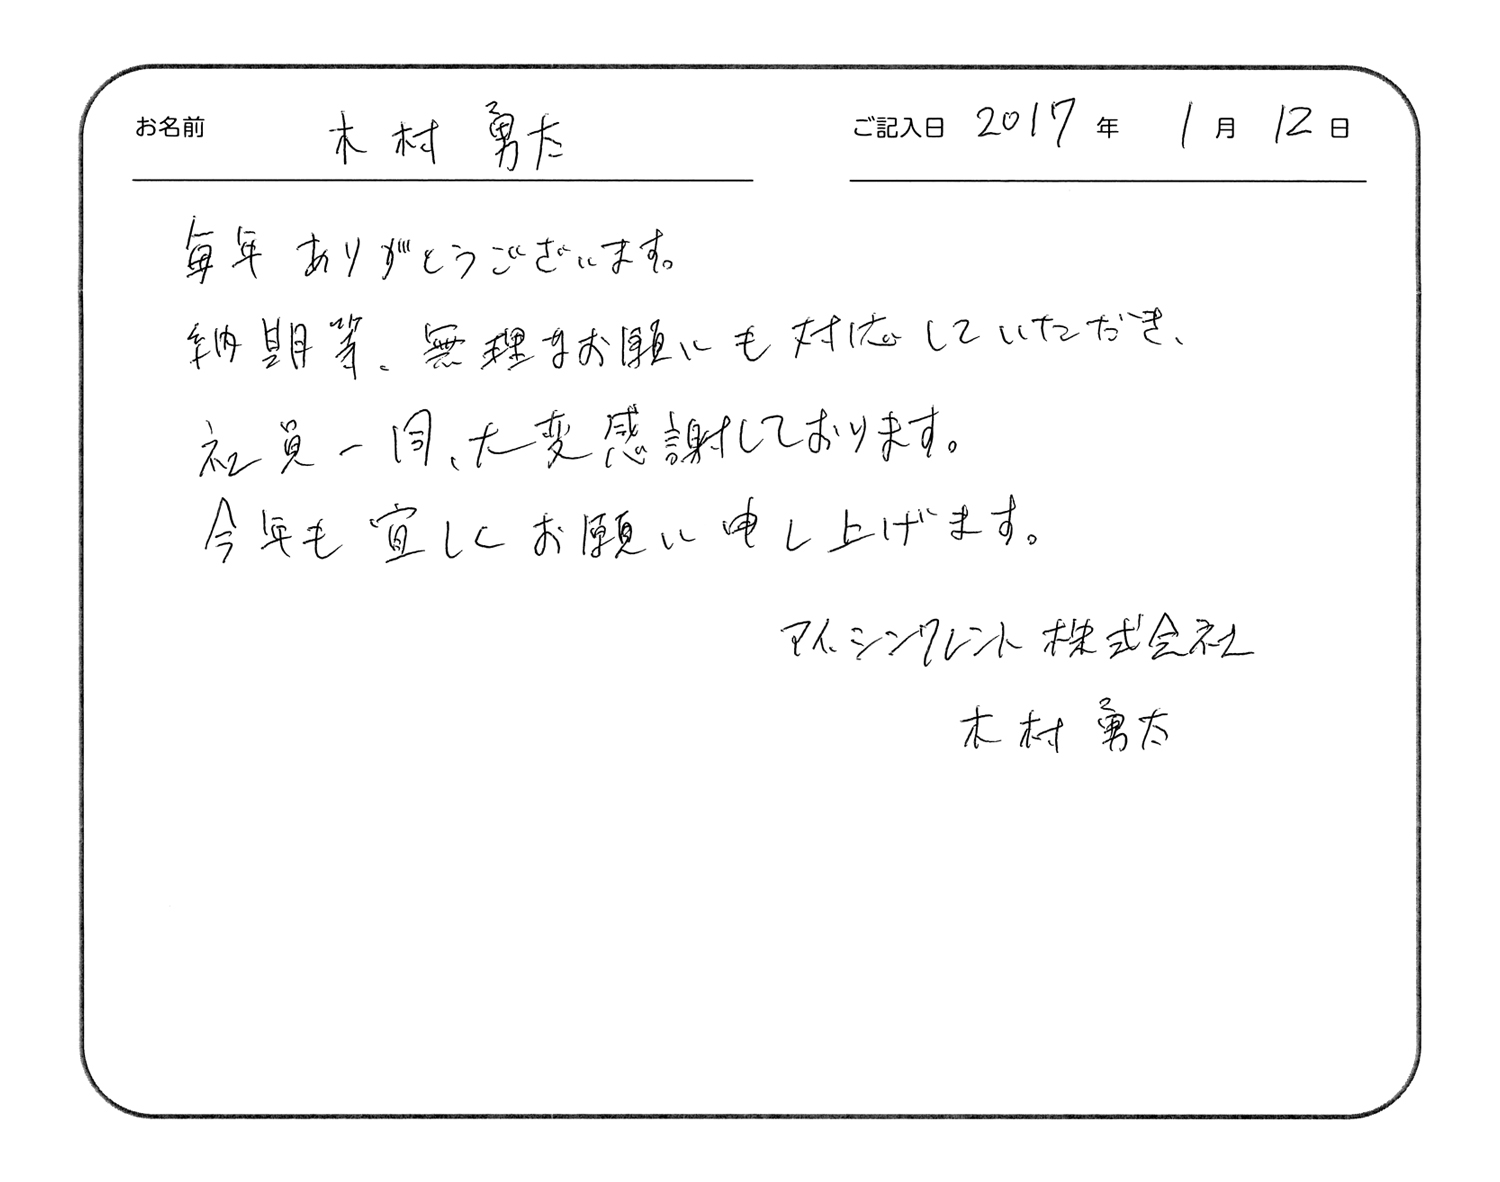 お名前 木村 勇太 ご記入日 2017 年 1 月 12 日
毎年ありがとうございます。
納期等、無理なお願いにも対応していただき、
社員一同、大変感謝しております。
今年も宜しくお願い申し上げます。
アイ・シンクレント株式会社
木村 勇太